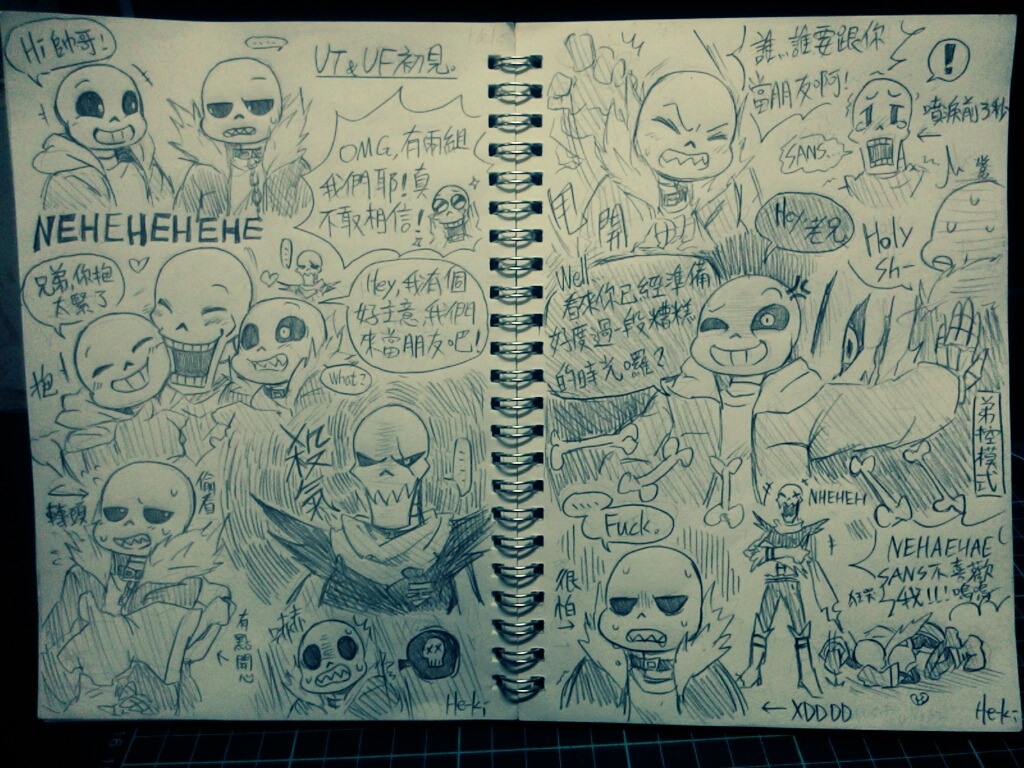 Hi 帥哥!
UT & UF初見。
OMG,有兩組
我們耶!真
不敢相信!
NEHEHEHEHE
兄弟,你抱
太緊了
Hey,我有個
好主意,我們
來當朋友吧!
What?
抱
殺氣
轉頭
偷看
有點開心
嚇
Heki
誰..誰要跟你
當朋友啊!
!
噴淚前3秒
SANS...
甩開
Hey 老兄
Holy
sh-
Well
看來你已經準備
好度過一段糟糕
的時光囉?
弟控模式
Fuck.
很怕
NHEHEH
NEHAEHAE
SANS不喜歡
我!!!嗚嗚
狂哭
← XDDDD
Heki